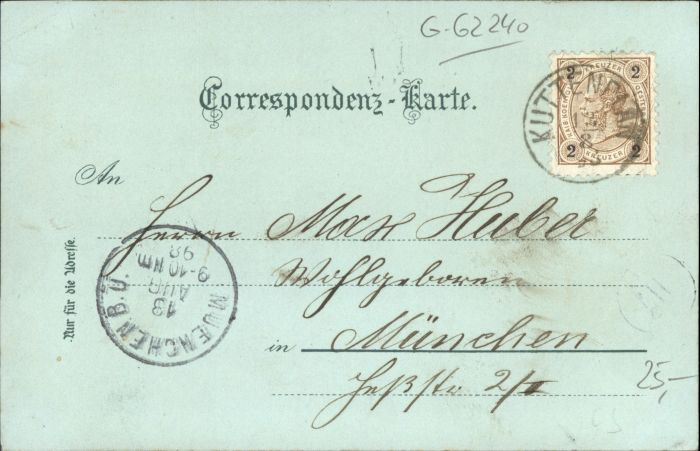 G-62240
2 KREUZER 2
2 KREUZER 2
KUTTENPLAN
Correspondenz-Karte.
An
Herrn Max Huber
Wohlgeboren
in München
Heßstr 2/I
Nur für die Adresse.
MUENCHEN B.U.
13
AUG
9-10 NM.
98
25,-